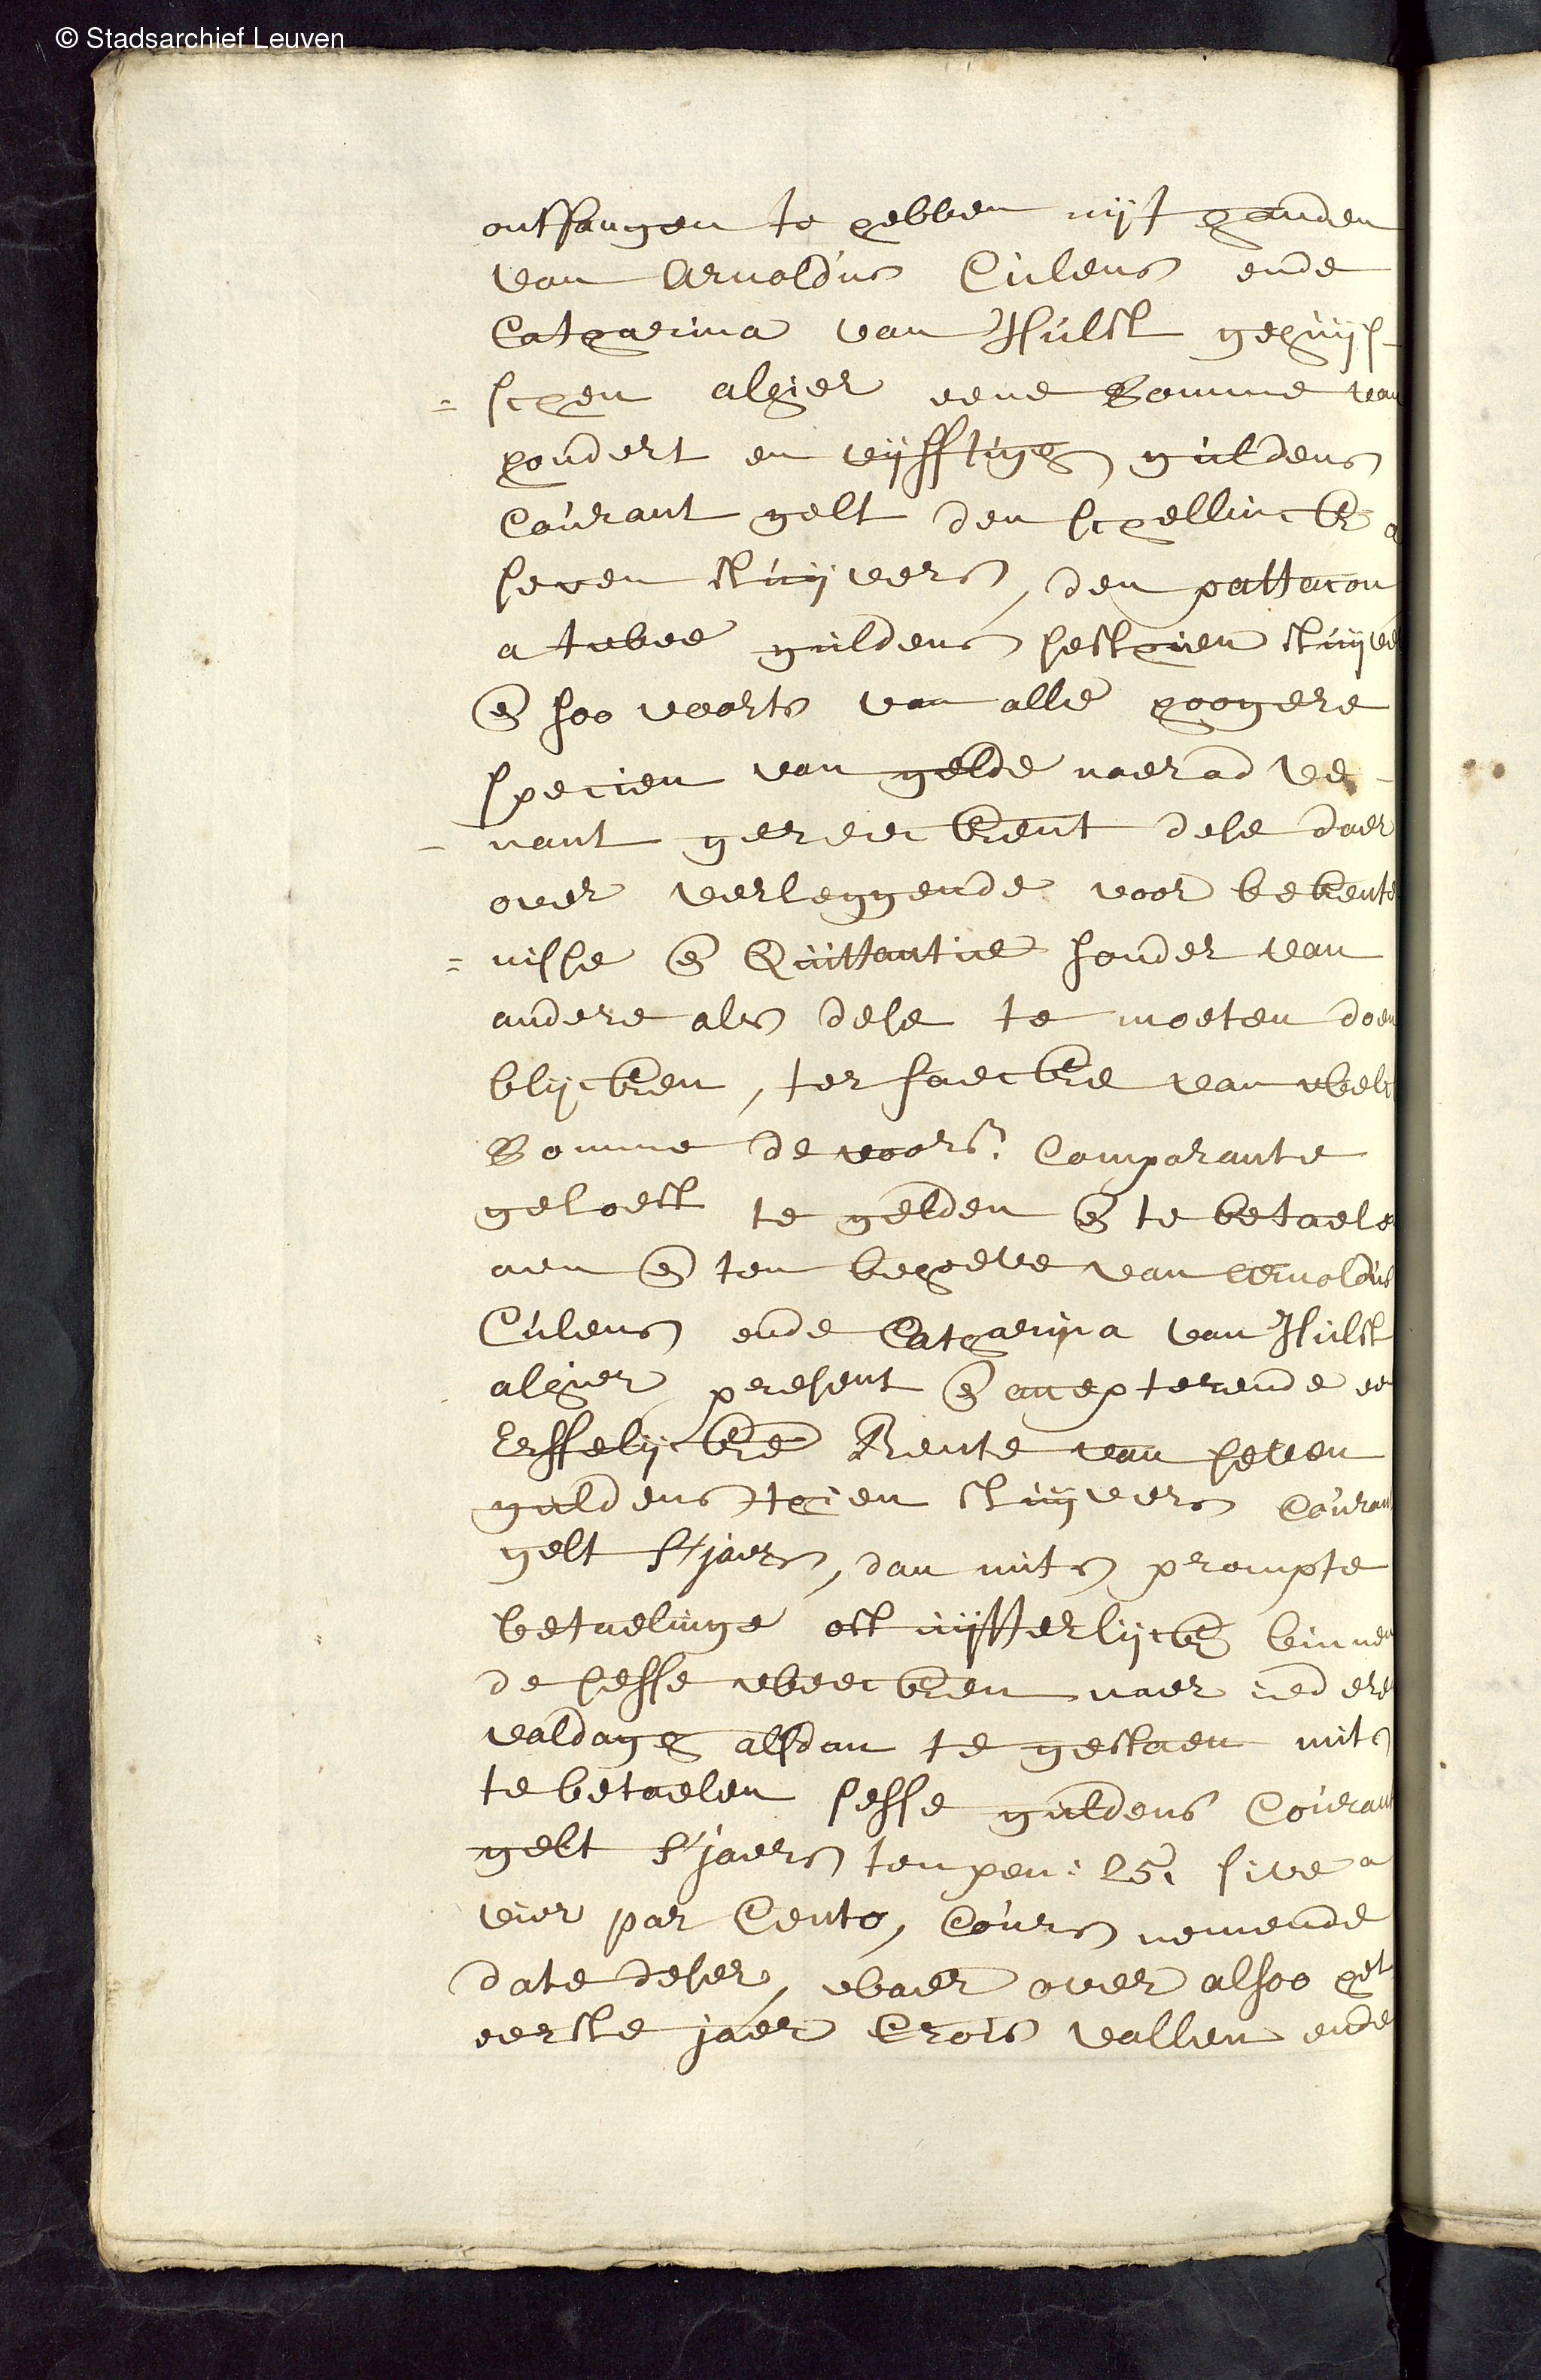 © Stadsarchief Leuven
ontfangen te hebben uijt handen
van Arnoldus Culens ende
Catharina van Hulst gehuijs-
= schen alhier eene Somme van
hondert en vijfftigh guldens
Courant gelt den schellinck a
seven stuijvers, den pattacon
a twee guldens sesthien stuijve
en soo voorts van alle hoogere
specien van gelde naer ad ve-
- nant gereeckent dese daer
over verleggende voor bekente
= nisse en Quittantie sonder van
andere als dese te moeten doen
blijcken, ter saecke van welc
Somme de voors. Comparante
geloeft te gelden en te betaele
aen en ten behoeve van Arnoldus
Culens ende Catharina van Hulst
alhier present en accepterende ee
Erffelijcke Rente van seven
guldens thien stuijvers Couran
gelt s'jaers, dan mits prompte
betaelinge oft uijtterlijck binnen
de sesse weecken naer iedere
valdagh alsdan te gestaen mits
te betaelen sesse guldens Courant
gelt s'jaers ten pen: 25. sive a
vier par Cento, Cours nemende
date deser, waer over alsoo het
eerste jaer Crois vallen ende